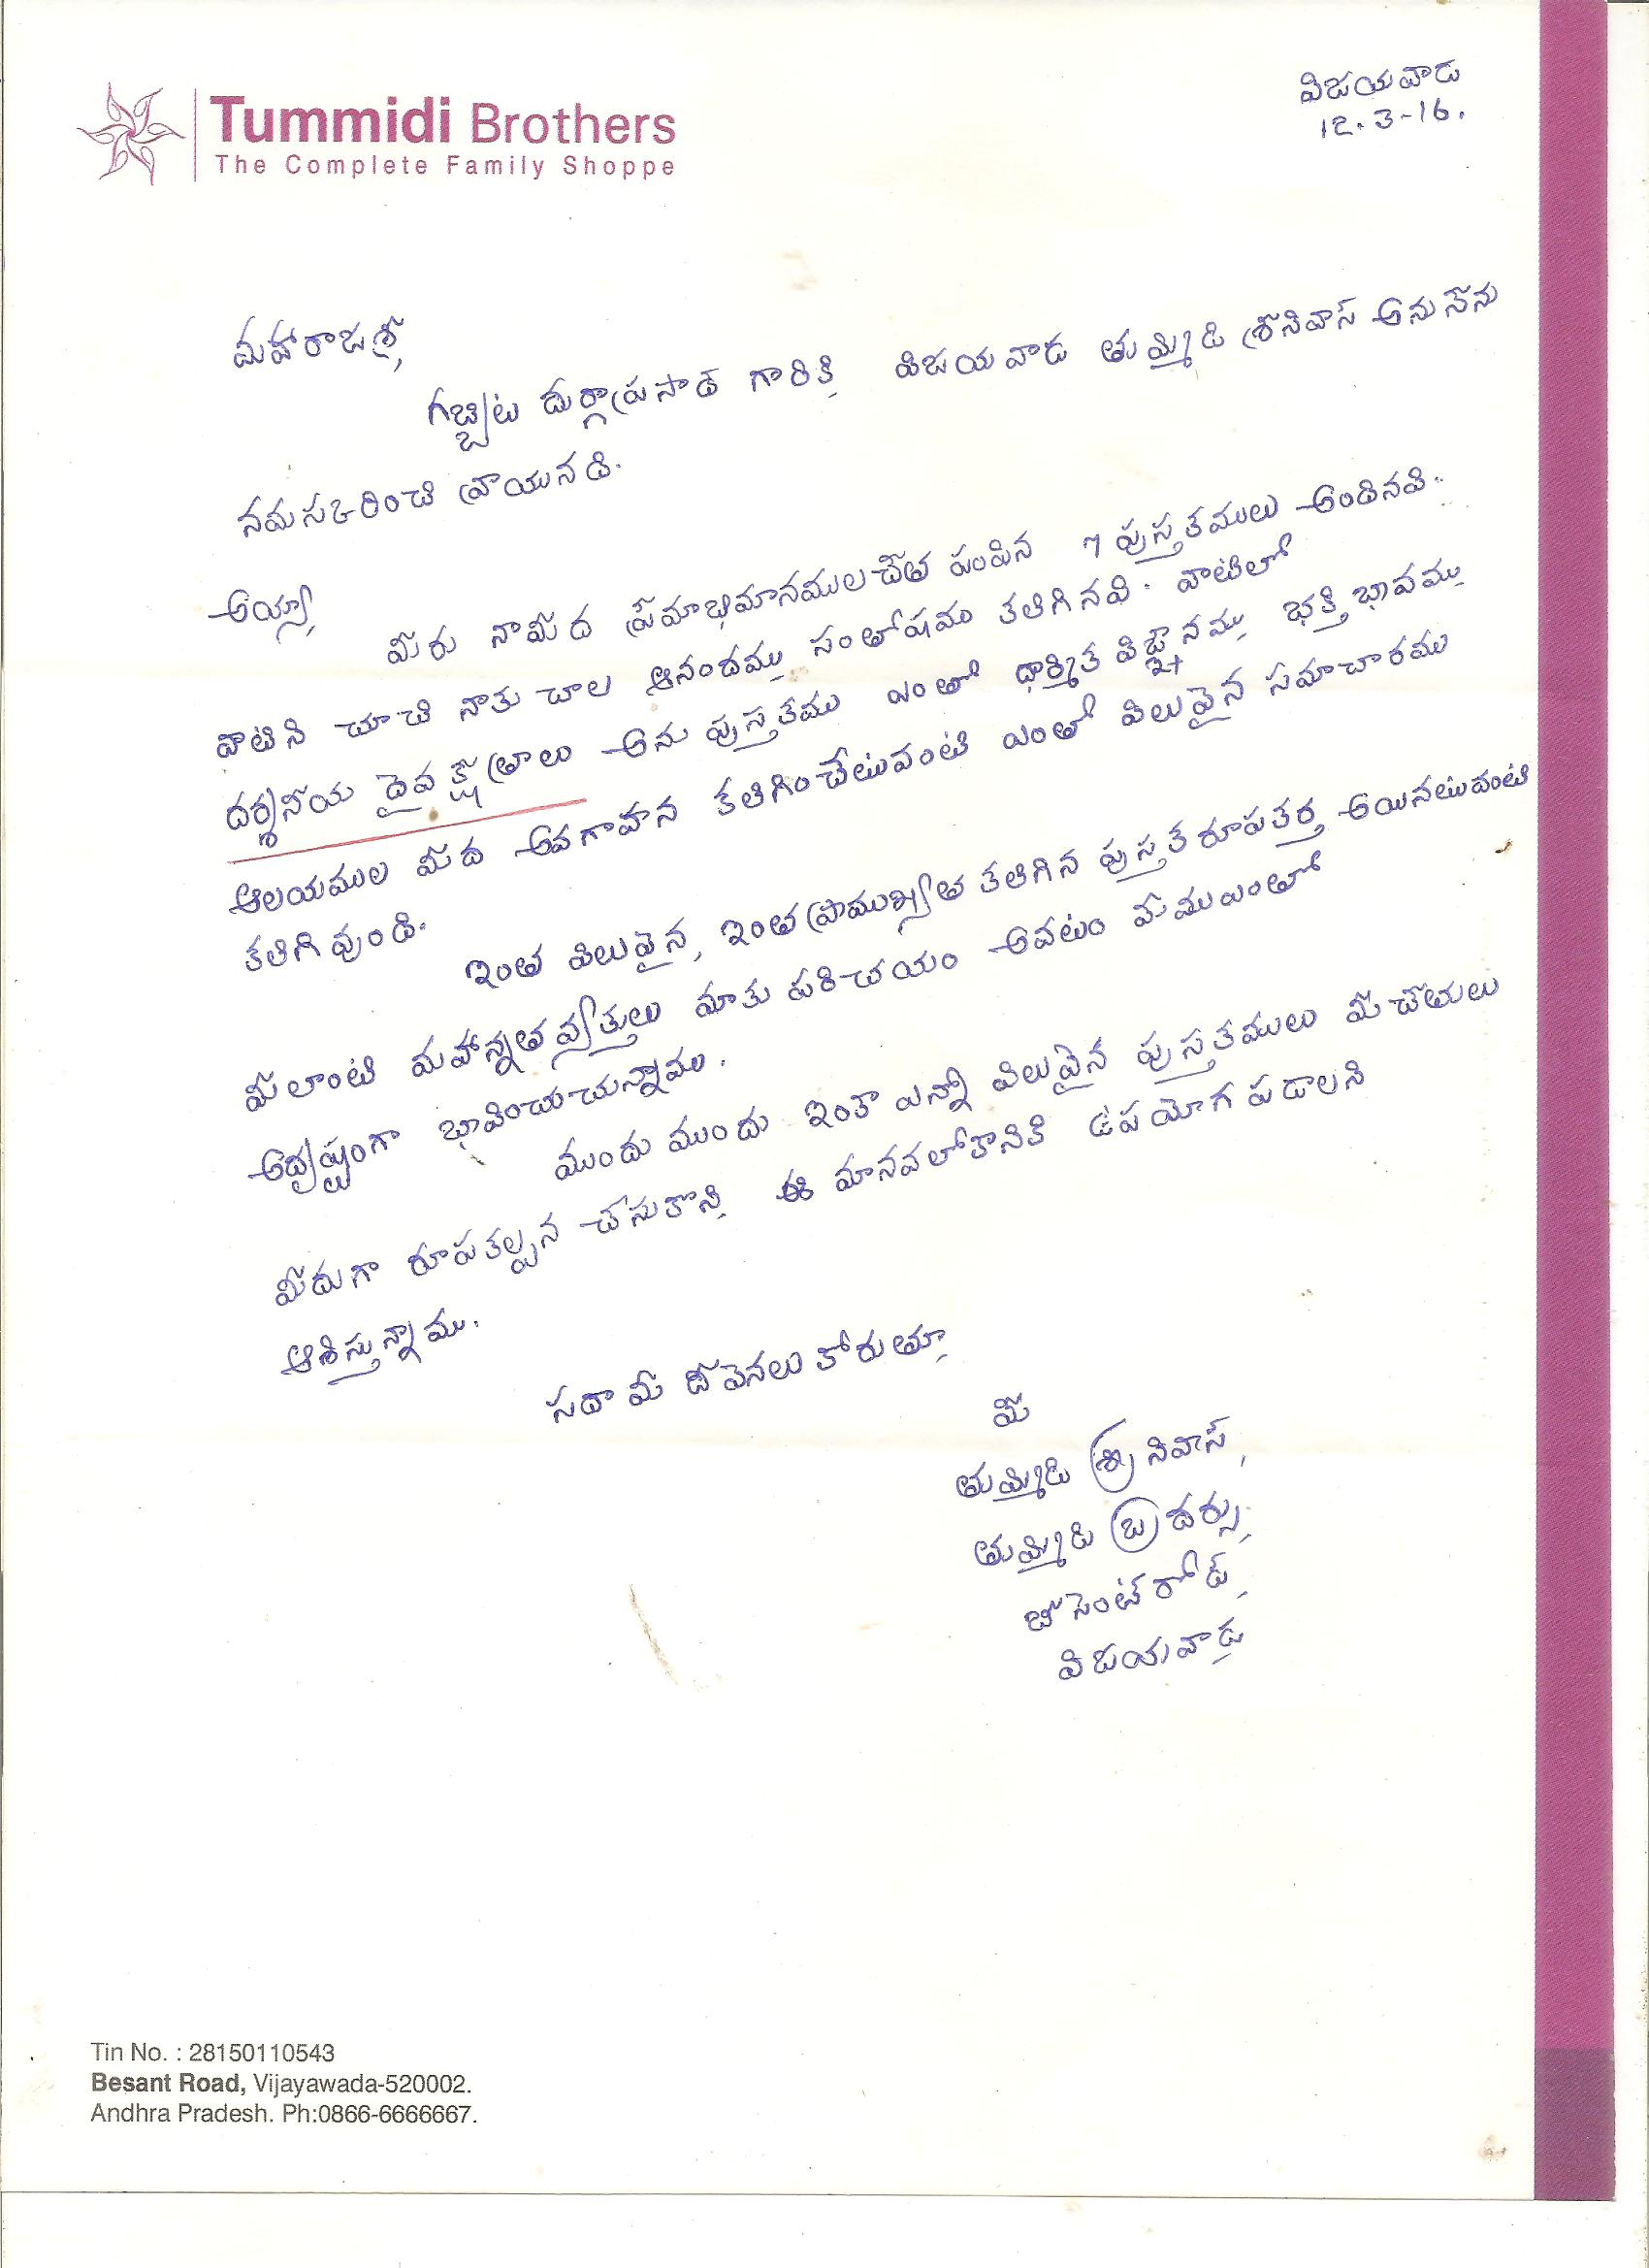 Tummidi Brothers
The Complete Family Shoppe
విజయవాడ
12.3-16.
మహారాజశ్రీ,
గబ్బిట దుర్గాప్రసాద్ గారికి, విజయవాడ తుమ్మిడి శ్రీనివాస్ అను నేను
నమస్కరించి వ్రాయునది.
అయ్యా,
మీరు నామీద ప్రేమాభిమానములచేత పంపిన 7 పుస్తకములు అందినవి.
వాటిని చూచి నాకు చాల ఆనందము, సంతోషము కలిగినవి. వాటిలో
దర్శనీయ దైవ క్షేత్రాలు అను పుస్తకము ఎంతో ధార్మిక విజ్ఞానము, భక్తి భావము
ఆలయముల మీద అవగాహన కలిగించేటువంటి ఎంతో విలువైన సమాచారము
కలిగి వుంది.
ఇంత విలువైన, ఇంత ప్రాముఖ్యత కలిగిన పుస్తక రూపకర్త అయినటువంటి
మీలాంటి మహోన్నత వ్యక్తులు మాకు పరిచయం అవటం మేము ఎంతో
అదృష్టంగా భావించుచున్నాము.
ముందు ముందు ఇంకా ఎన్నో విలువైన పుస్తకములు మీ చేతులు
మీదుగా రూపకల్పన చేసుకొని, ఈ మానవలోకానికి ఉపయోగ పడాలని
ఆశిస్తున్నాము.
సదా మీ దీవెనలు కోరుతూ,
మీ
తుమ్మిడి శ్రీనివాస్,
తుమ్మిడి బ్రదర్సు,
బీసెంట్ రోడ్,
విజయవాడ
Tin No. : 28150110543
Besant Road, Vijayawada-520002.
Andhra Pradesh. Ph:0866-6666667.